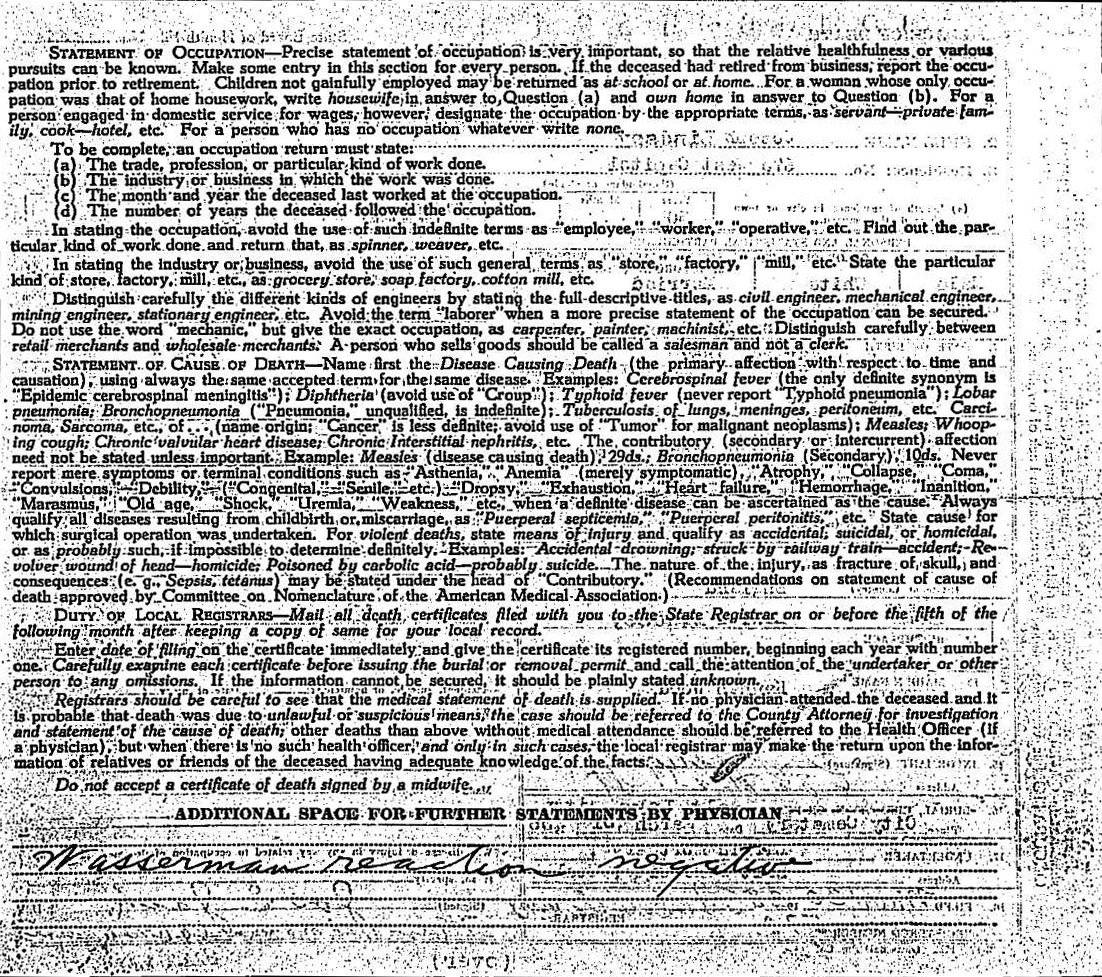 STATEMENT OF OCCUPATION—Precise statement of occupation is very important, so that the relative healthfulness or various
pursuits can be known. Make some entry in this section for every person. If the deceased had retired from business, report the occu-
pation prior to retirement. Children not gainfully employed may be returned as at school or at home. For a woman whose only occu-
pation was that of home housework, write housewife in answer to Question (a) and own home in answer to Question (b). For a
person engaged in domestic service for wages, however, designate the occupation by the appropriate terms, as servant—private fam-
ily, cook—hotel, etc. For a person who has no occupation whatever write none.
To be complete, an occupation return must state:
(a) The trade, profession, or particular kind of work done.
(b) The industry or business in which the work was done.
(c) The month and year the deceased last worked at the occupation.
(d) The number of years the deceased followed the occupation.
In stating the occupation, avoid the use of such indefinite terms as "employee," "worker," "operative," etc. Find out the par-
ticular kind of work done and return that, as spinner, weaver, etc.
In stating the industry or business, avoid the use of such general terms as "store," "factory," "mill," etc. State the particular
kind of store, factory, mill, etc., as grocery store, soap factory, cotton mill, etc.
Distinguish carefully the different kinds of engineers by stating the full descriptive titles, as civil engineer, mechanical engineer,
mining engineer, stationary engineer, etc. Avoid the term "laborer" when a more precise statement of the occupation can be secured.
Do not use the word "mechanic," but give the exact occupation, as carpenter, painter, machinist, etc. Distinguish carefully between
retail merchants and wholesale merchants. A person who sells goods should be called a salesman and not a clerk.
STATEMENT OF CAUSE OF DEATH—Name first the Disease Causing Death (the primary affection with respect to time and
causation), using always the same accepted term for the same disease. Examples: Cerebrospinal fever (the only definite synonym is
"Epidemic cerebrospinal meningitis"); Diphtheria (avoid use of "Croup"); Typhoid fever (never report "Typhoid pneumonia"); Lobar
pneumonia; Bronchopneumonia ("Pneumonia," unqualified, is indefinite); Tuberculosis of lungs, meninges, peritoneum, etc. Carci-
noma, Sarcoma, etc., of ... (name origin; "Cancer" is less definite; avoid use of "Tumor" for malignant neoplasms); Measles; Whoop-
ing cough; Chronic valvular heart disease; Chronic Interstitial nephritis, etc. The contributory (secondary or intercurrent) affection
need not be stated unless important. Example: Measles (disease causing death), 29ds.; Bronchopneumonia (Secondary), 10ds. Never
report mere symptoms or terminal conditions such as "Asthenia," "Anemia" (merely symptomatic), "Atrophy," "Collapse," "Coma,"
"Convulsions," "Debility," ("Congenital," "Senile," etc.) "Dropsy," "Exhaustion," "Heart failure," "Hemorrhage," "Inanition,"
"Marasmus," "Old age," "Shock," "Uremia," "Weakness," etc., when a definite disease can be ascertained as the cause. Always
qualify all diseases resulting from childbirth or miscarriage, as "Puerperal septicemia," "Puerperal peritonitis," etc. State cause for
which surgical operation was undertaken. For violent deaths, state means of injury and qualify as accidental, suicidal, or homicidal,
or as probably such, if impossible to determine definitely. Examples: Accidental drowning; struck by railway train—accident; Re-
volver wound of head—homicide; Poisoned by carbolic acid—probably suicide. The nature of the injury, as fracture of skull, and
consequences (e. g., Sepsis, tetanus) may be stated under the head of "Contributory." (Recommendations on statement of cause of
death approved by Committee on Nomenclature of the American Medical Association.)
DUTY OF LOCAL REGISTRARS—Mail all death certificates filed with you to the State Registrar on or before the fifth of the
following month after keeping a copy of same for your local record.
Enter date of filing on the certificate immediately and give the certificate its registered number, beginning each year with number
one. Carefully examine each certificate before issuing the burial or removal permit and call the attention of the undertaker or other
person to any omissions. If the information cannot be secured, it should be plainly stated unknown.
Registrars should be careful to see that the medical statement of death is supplied. If no physician attended the deceased and it
is probable that death was due to unlawful or suspicious means, the case should be referred to the County Attorney for investigation
and statement of the cause of death; other deaths than above without medical attendance should be referred to the Health Officer (if
a physician), but when there is no such health officer, and only in such cases, the local registrar may make the return upon the infor-
mation of relatives or friends of the deceased having adequate knowledge of the facts.
Do not accept a certificate of death signed by a midwife.
ADDITIONAL SPACE FOR FURTHER STATEMENTS BY PHYSICIAN
Wasserman reaction negative